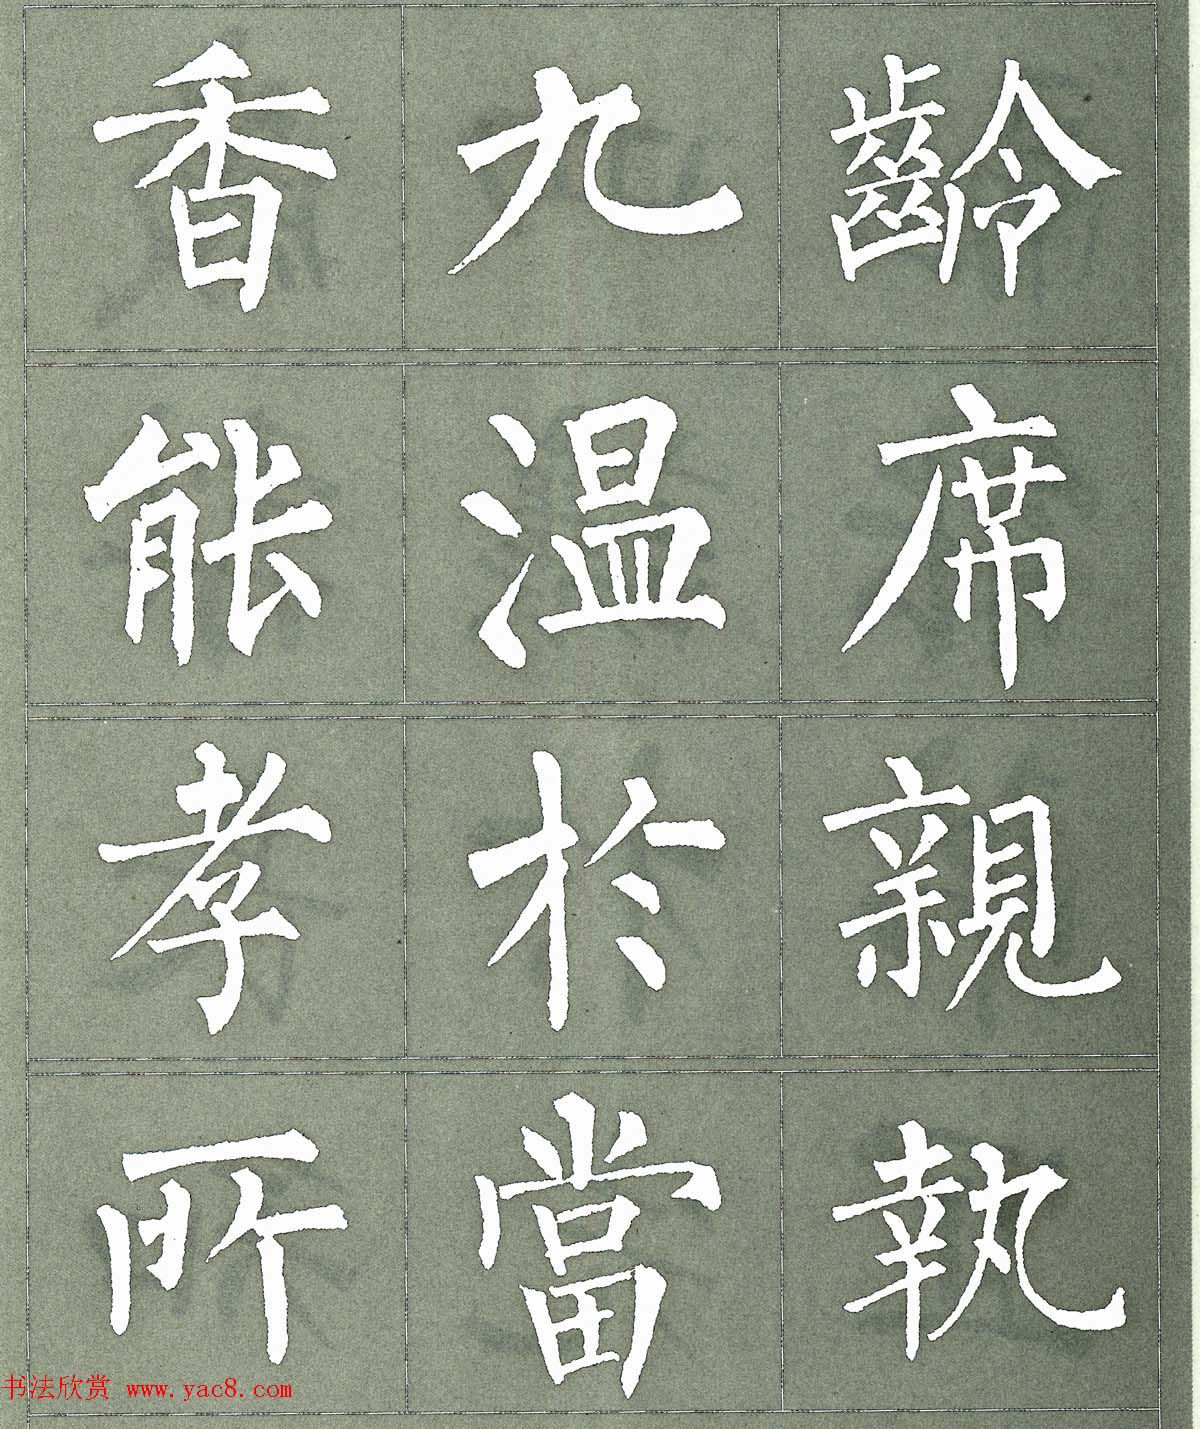 香九齡
能温席
孝於親
所當執
书法欣赏 www.yac8.com